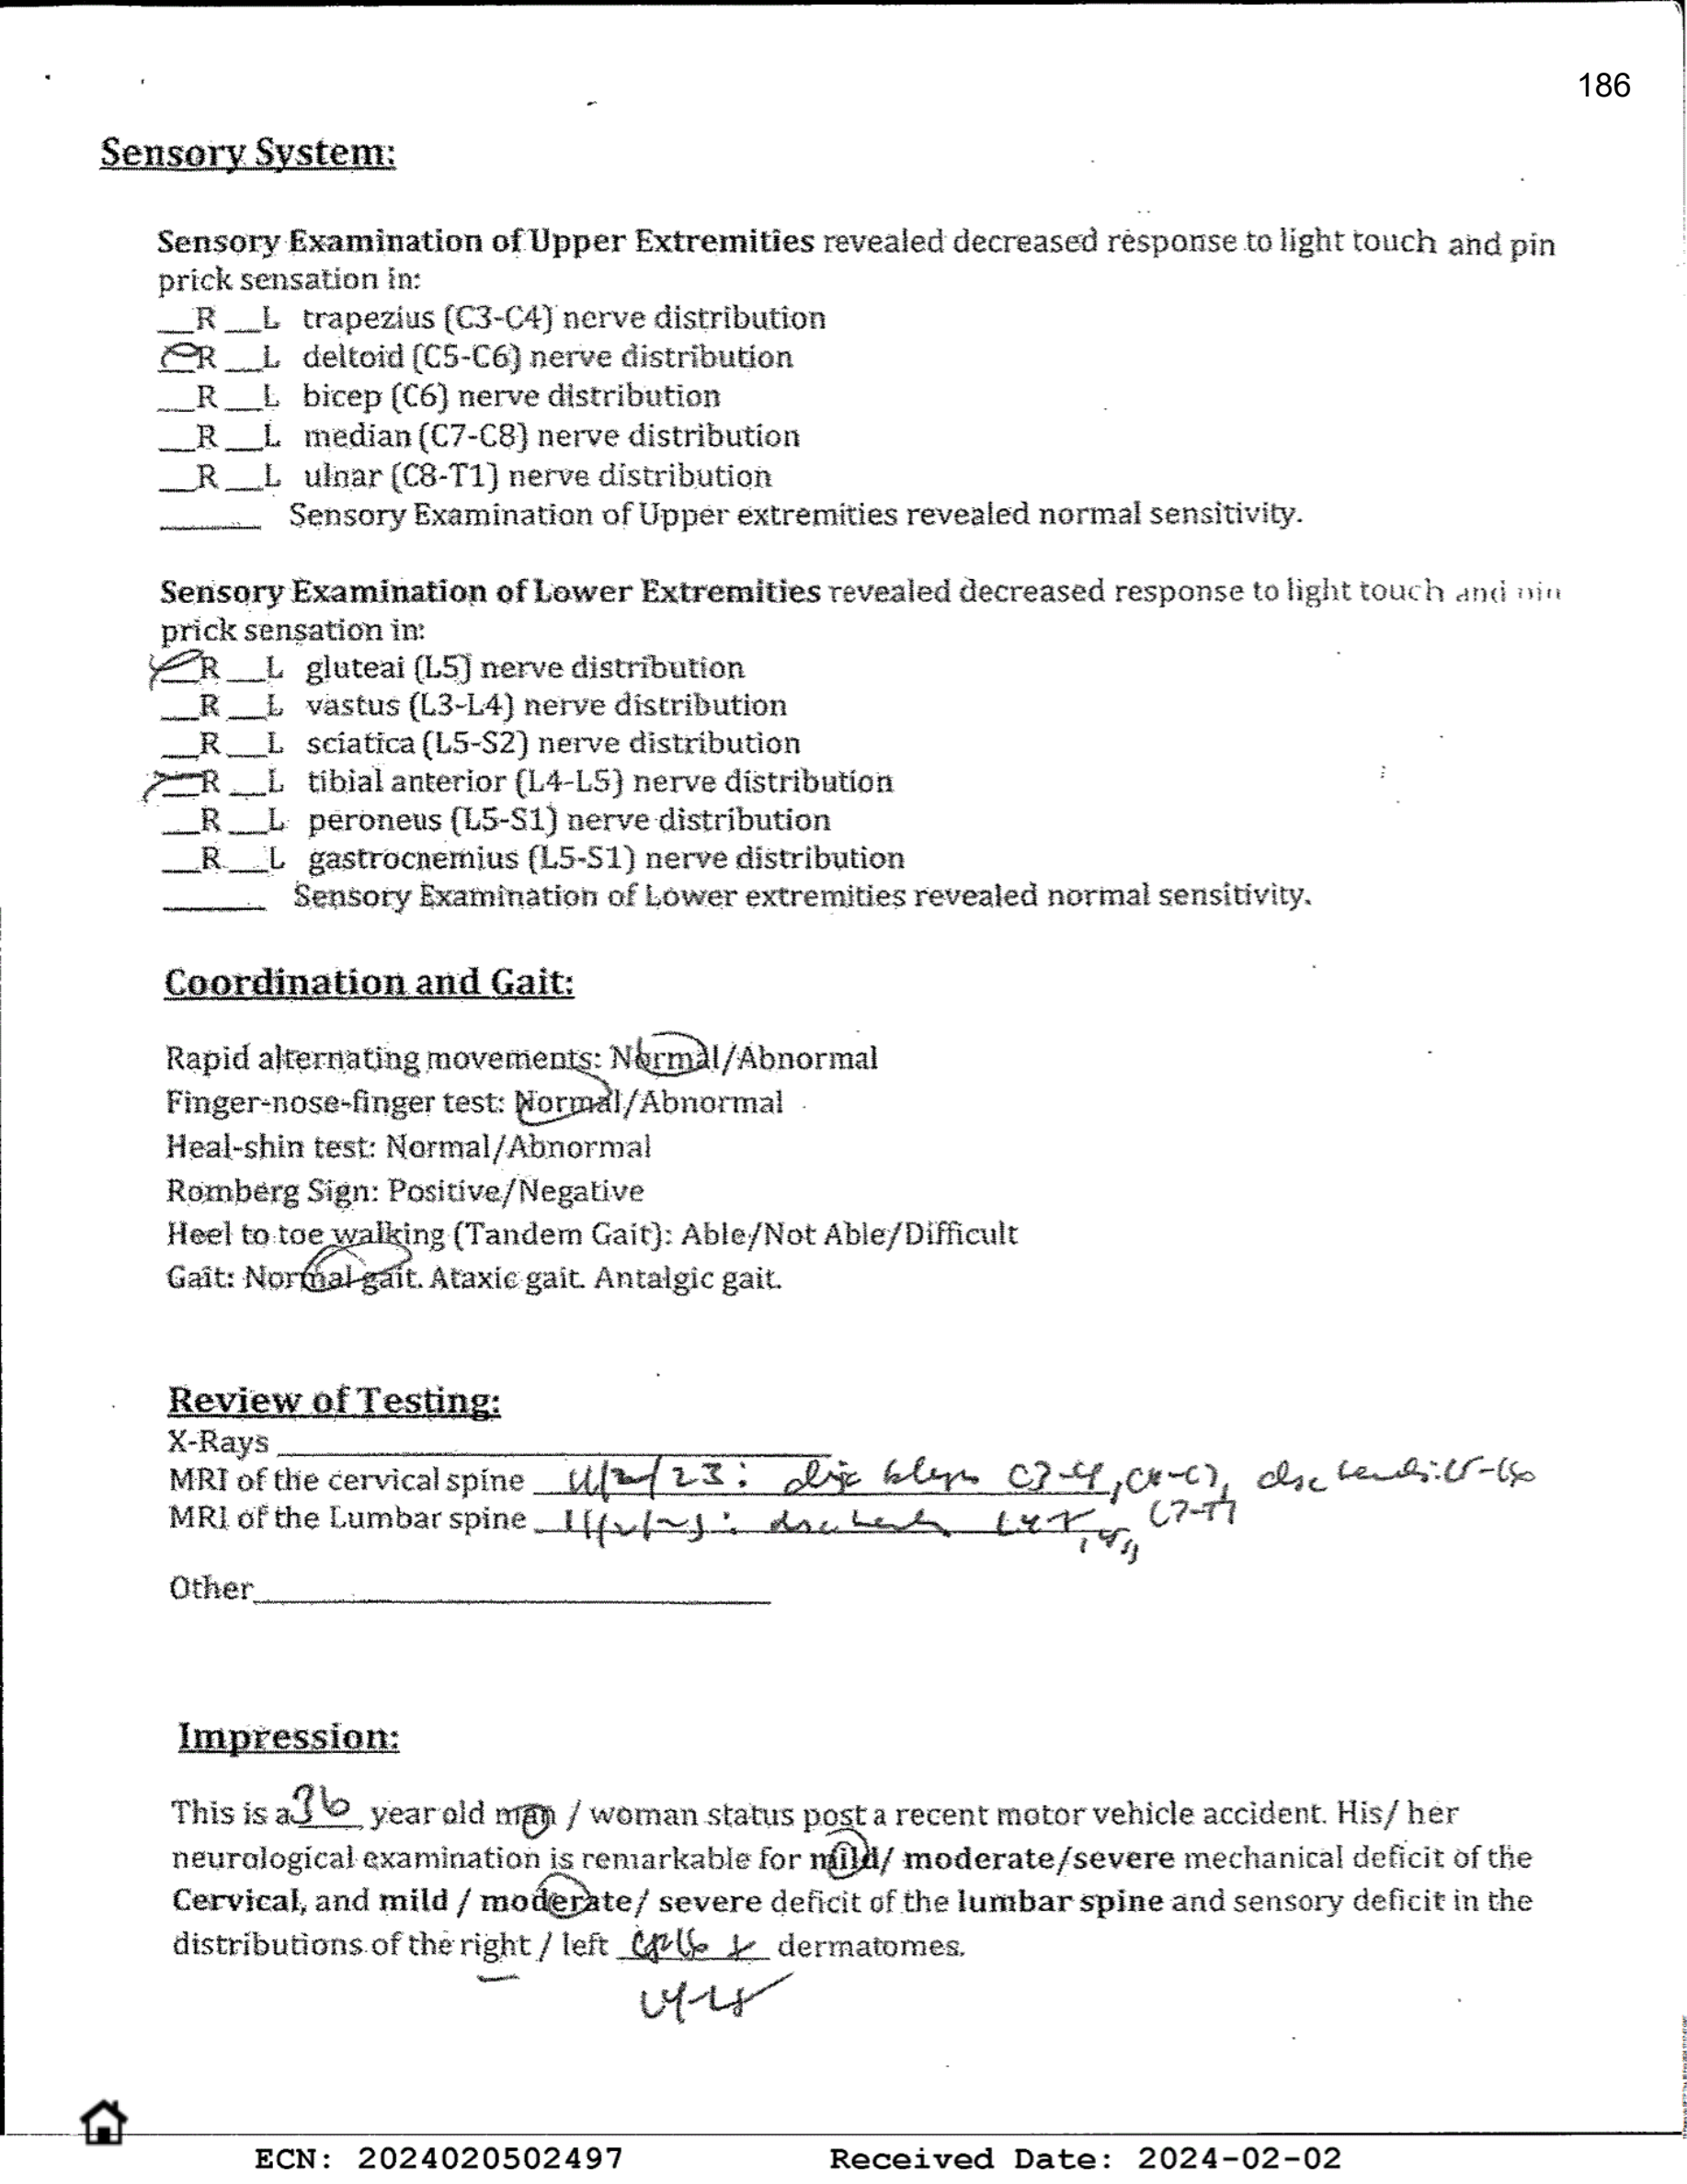 186
Sensory System:
Sensory Examination of Upper Extremities revealed decreased response to light touch and pin
prick sensation in:
__R __L trapezius (C3-C4) nerve distribution
__R __L deltoid (C5-C6) nerve distribution
__R __L bicep (C6) nerve distribution
__R __L median (C7-C8) nerve distribution
__R __L ulnar (C8-T1) nerve distribution
______ Sensory Examination of Upper extremities revealed normal sensitivity.
Sensory Examination of Lower Extremities revealed decreased response to light touch and pin
prick sensation in:
__R __L gluteai (L5) nerve distribution
__R __L vastus (L3-L4) nerve distribution
__R __L sciatica (L5-S2) nerve distribution
__R __L tibial anterior (L4-L5) nerve distribution
__R __L peroneus (L5-S1) nerve distribution
__R __L gastrocnemius (L5-S1) nerve distribution
______ Sensory Examination of Lower extremities revealed normal sensitivity.
Coordination and Gait:
Rapid alternating movements: Normal/Abnormal
Finger-nose-finger test: Normal/Abnormal
Heal-shin test: Normal/Abnormal
Romberg Sign: Positive/Negative
Heel to toe walking (Tandem Gait): Able/Not Able/Difficult
Gait: Normal gait. Ataxic gait. Antalgic gait.
Review of Testing:
X-Rays
MRI of the cervical spine /23: disc C3-4, disc
C7-T1
MRI of the Lumbar spine
Other
Impression:
This is a 36 year old man / woman status post a recent motor vehicle accident. His/ her
neurological examination is remarkable for mild/ moderate/severe mechanical deficit of the
Cervical, and mild / moderate/ severe deficit of the lumbar spine and sensory deficit in the
distributions of the right / left dermatomes.
ECN: 2024020502497 Received Date: 2024-02-02